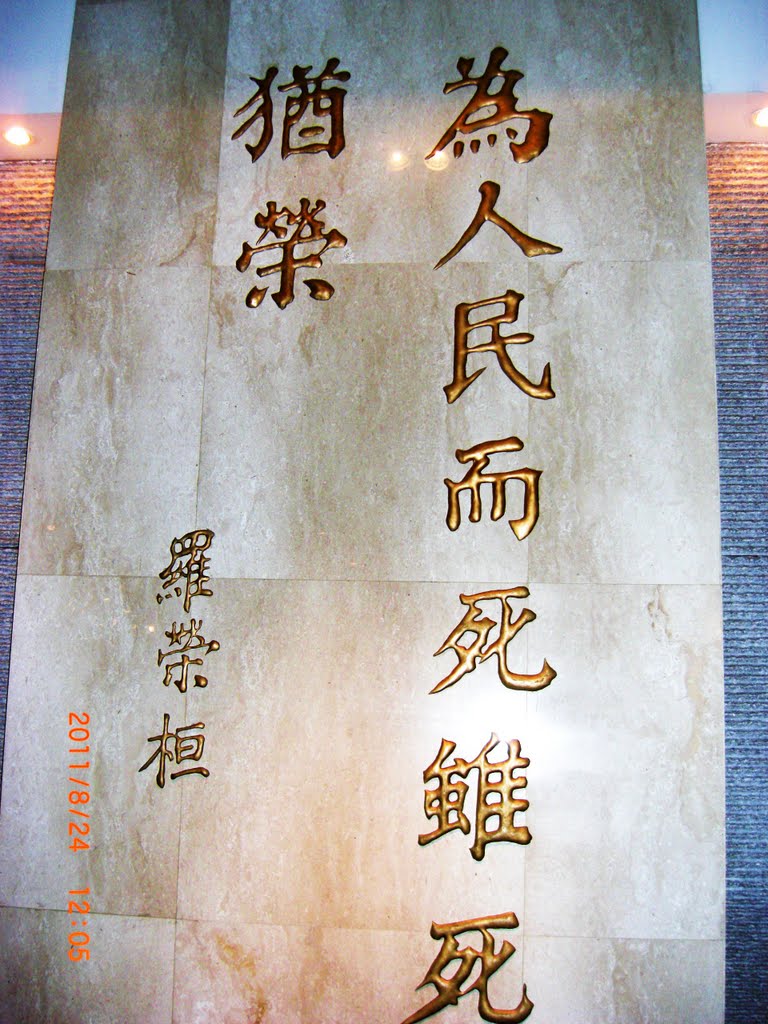 為人民而死雖死
猶榮
羅榮桓
2011/8/24 12:05